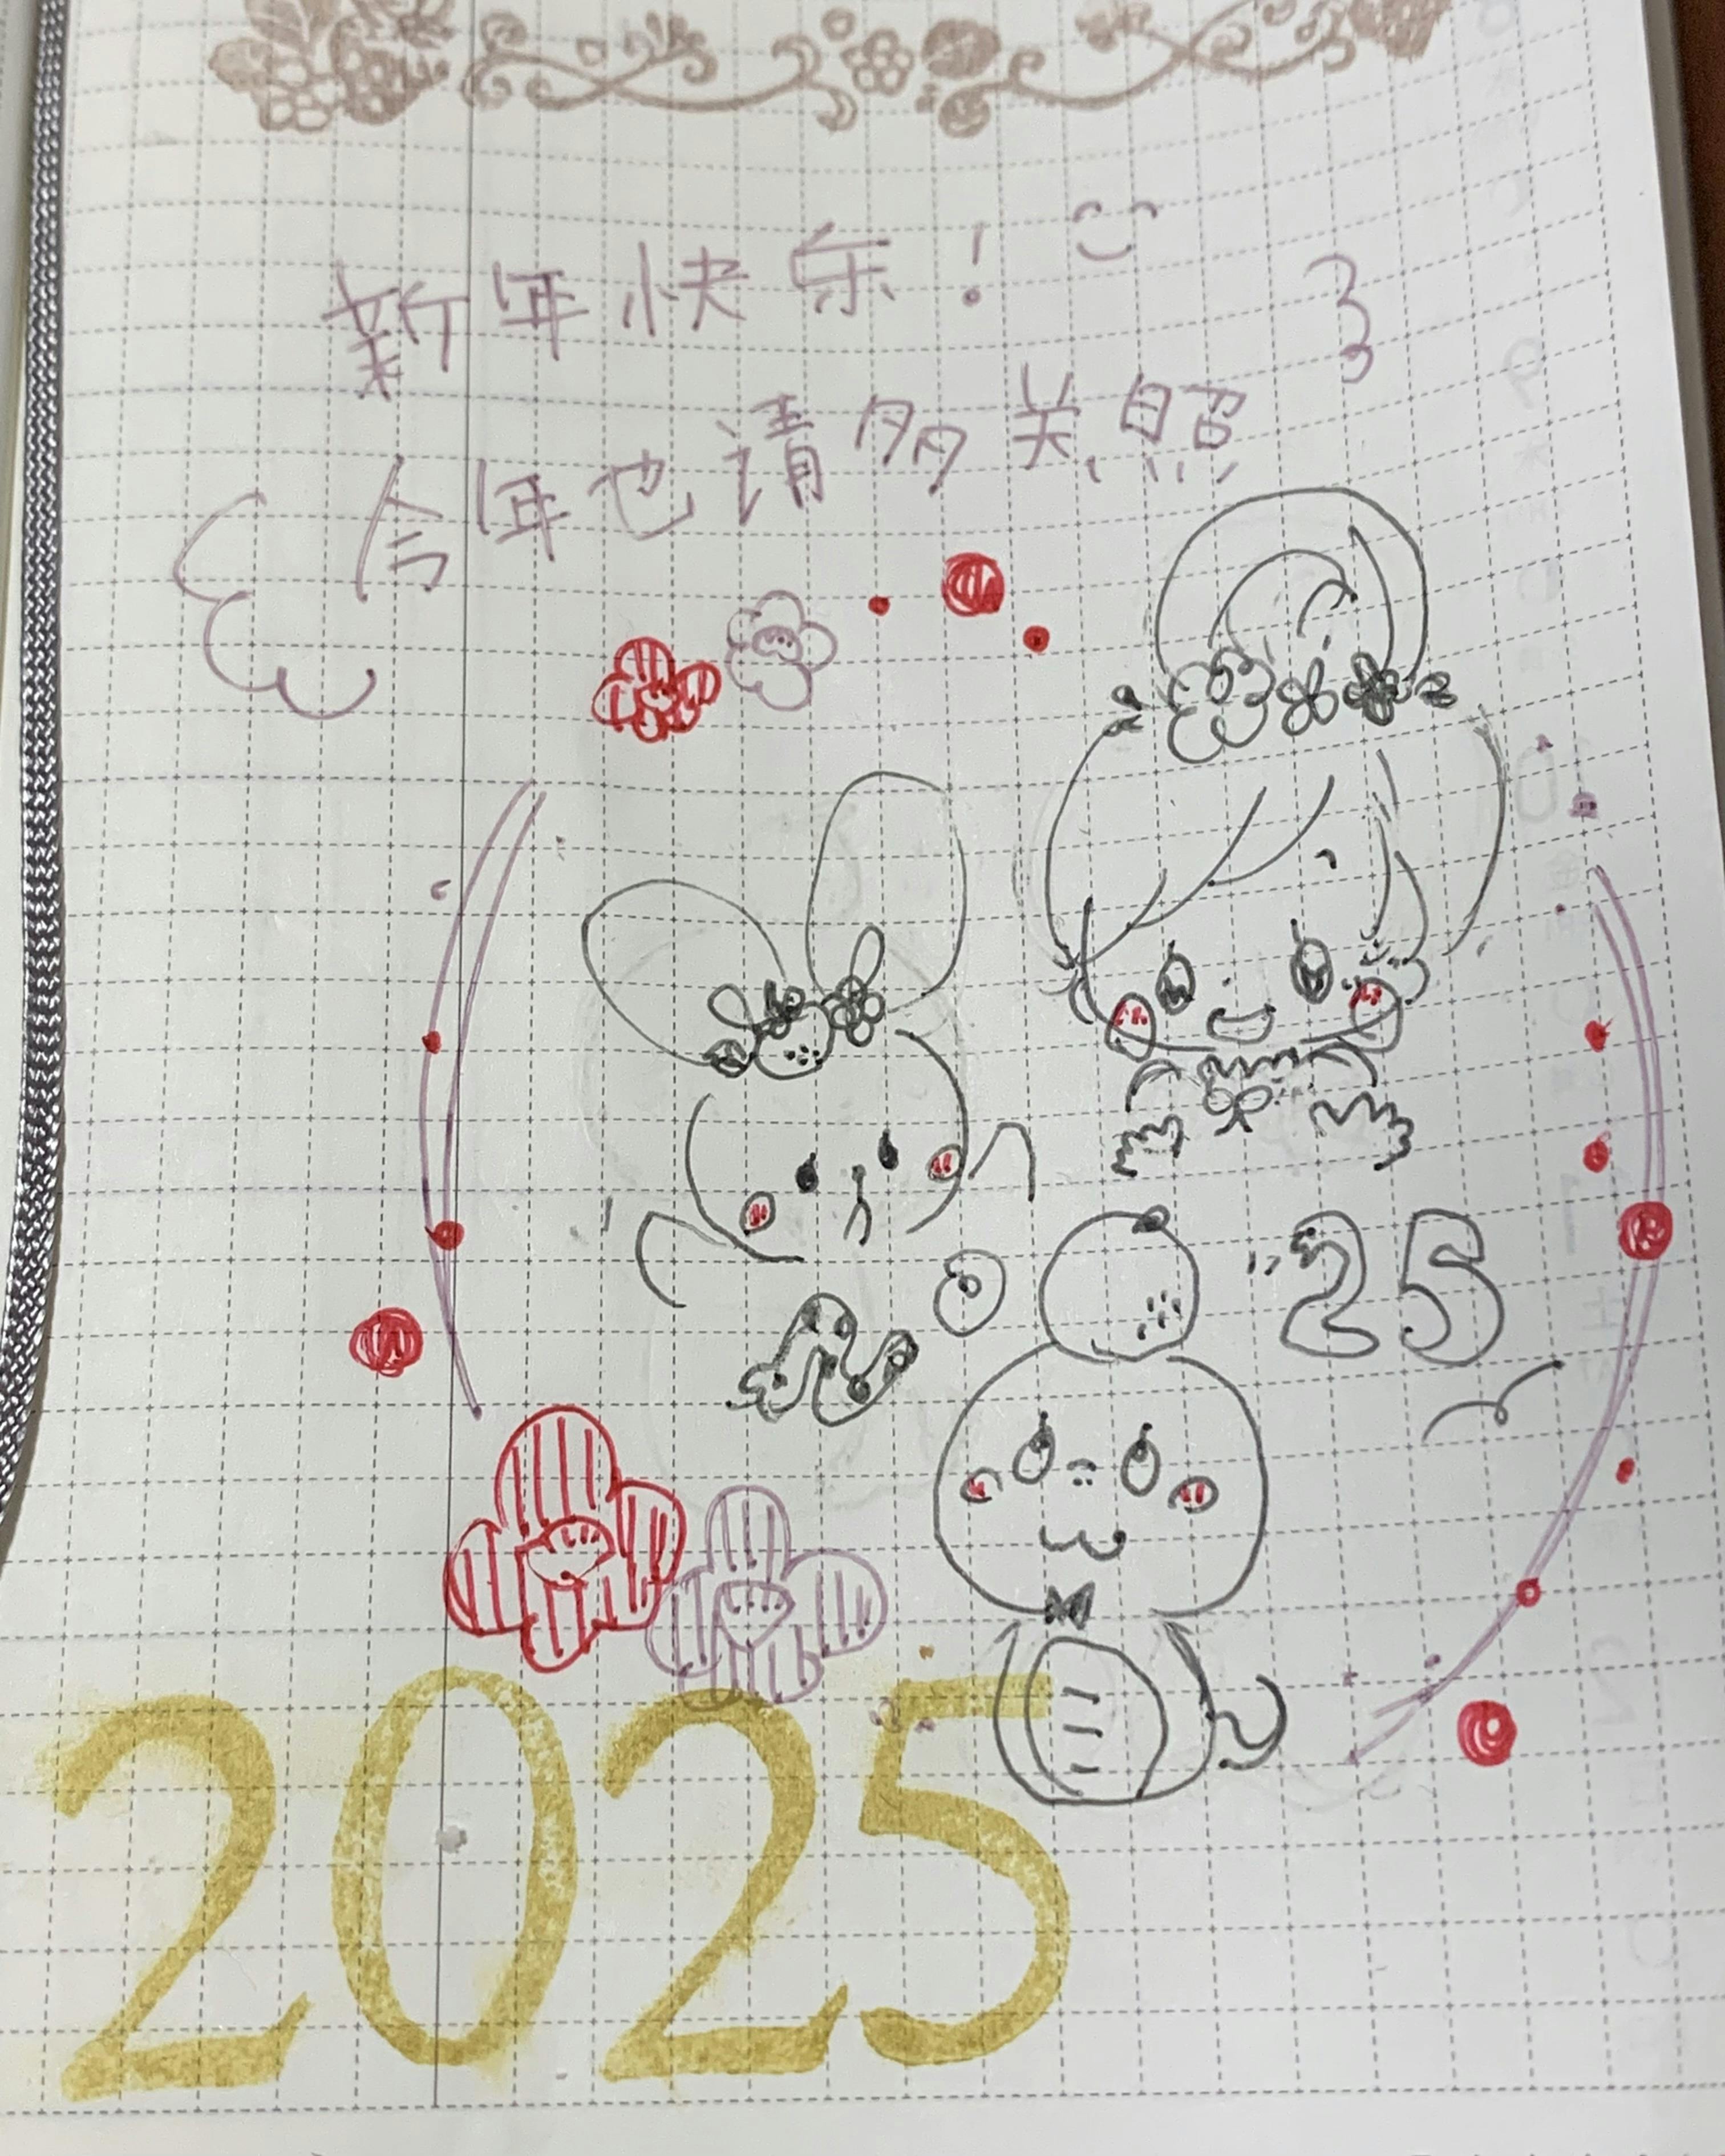 新年快乐！
今年也请多关照
25
2025